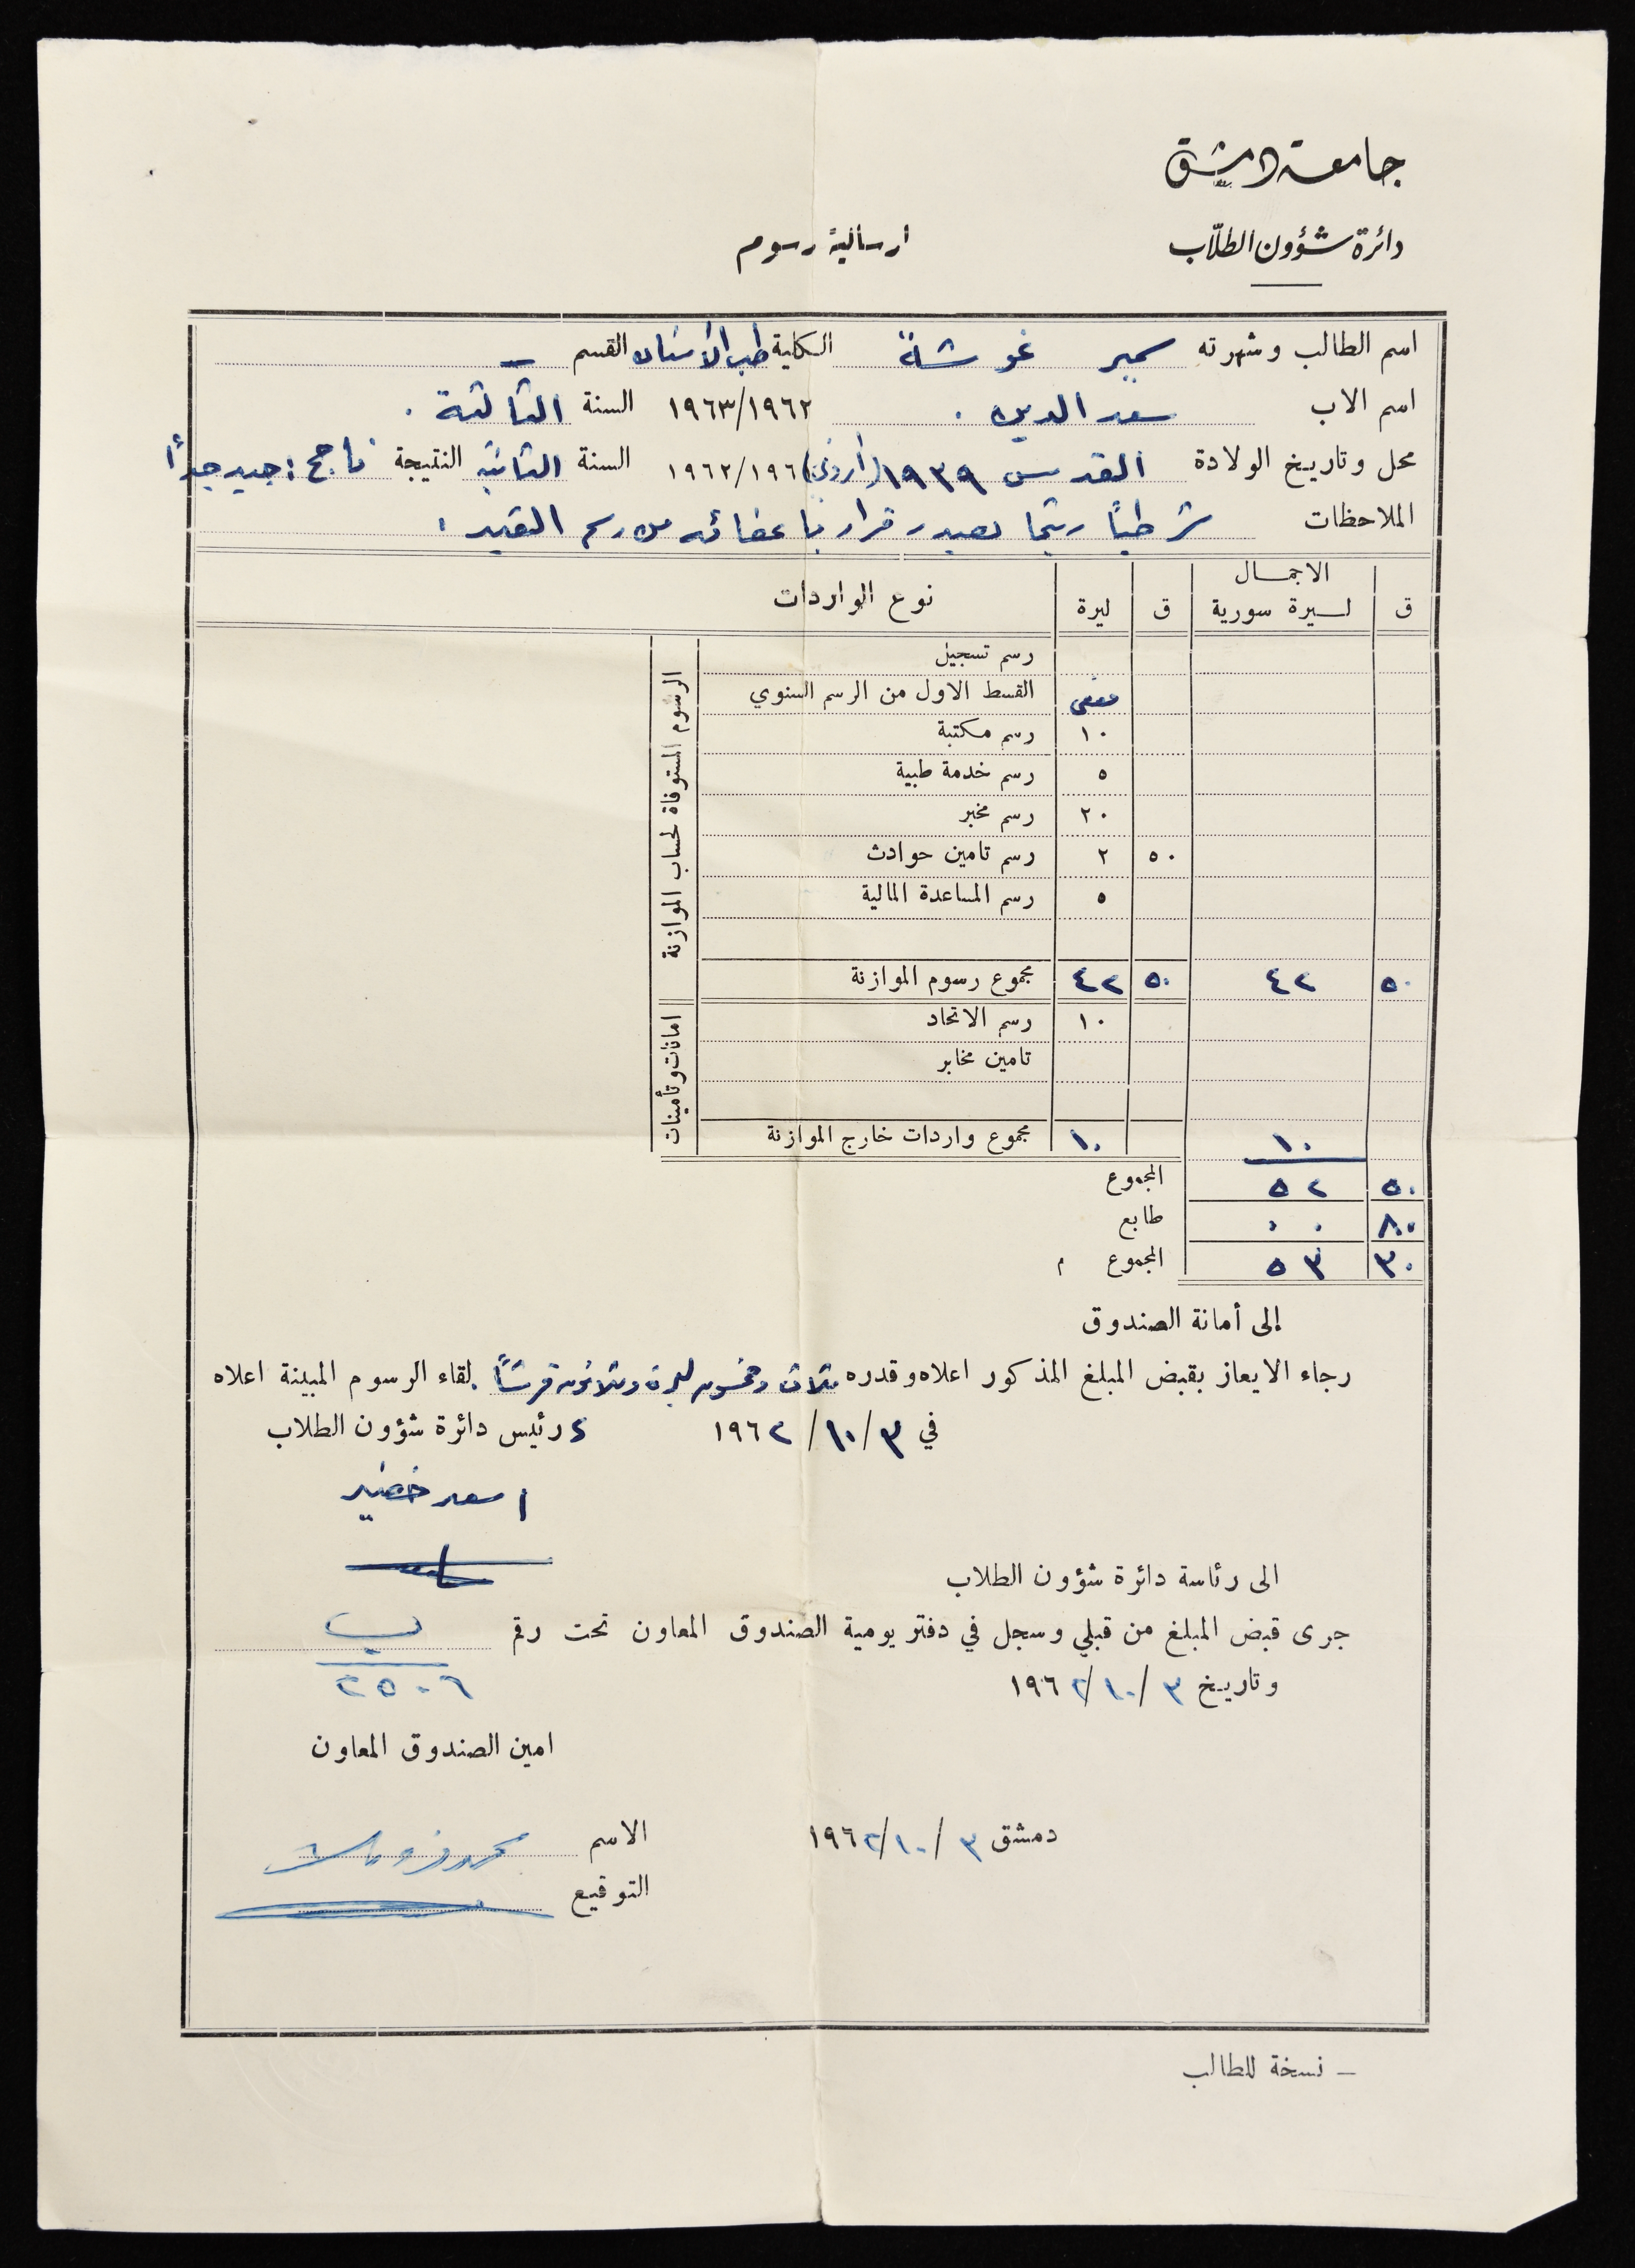 جامعة دمشق
دائرة شؤون الطلّاب
ارسالية رسوم
اسم الطالب وشهرته سمير غوشة الكلية طب الأسنان القسم –
اسم الاب سعد الدين . ١٩٦٢/١٩٦٣ السنة الثالثة .
محل وتاريخ الولادة القدس ١٩٣٩ (أردني) ١٩٦٢/١٩٦١ السنة الثانية النتيجة ناجح : جيد جداً
الملاحظات شرطياً ريثما يصدر قرار باعفائه من رسم القيد .
ق الاجمال ليرة سورية ق ليرة نوع الواردات
الرسوم المستوفاة لحساب الموازنة
رسم تسجيل
معفى القسط الاول من الرسم السنوي
١٠ رسم مكتبة
٥ رسم خدمة طبية
٢٠ رسم مخبر
٥٠ ٢ رسم تامين حوادث
٥ رسم المساعدة المالية
٥٠ ٤٢ ٥٠ ٤٢ مجموع رسوم الموازنة
امانات وتأمينات
١٠ رسم الاتحاد
تامين مخابر
١٠ ١٠ مجموع واردات خارج الموازنة
٥٠ ٥٢ المجموع
٨٠ ٠٠ طابع
٣٠ ٥٣ المجموع
إلى أمانة الصندوق
رجاء الايعاز بقبض المبلغ المذكور اعلاه وقدره ثلاث وخمسون ليرة وثلاثون قرشاً لقاء الرسوم المبينة اعلاه
في ٣/١٠/١٩٦٢ رئيس دائرة شؤون الطلاب
اسعد خضير
الى رئاسة دائرة شؤون الطلاب
جرى قبض المبلغ من قبلي وسجل في دفتر يومية الصندوق المعاون تحت رقم ب
٢٥٠٦
وتاريخ ٣/١٠/١٩٦٢
امين الصندوق المعاون
دمشق ٣/١٠/١٩٦٢ الاسم
التوقيع
– نسخة للطالب